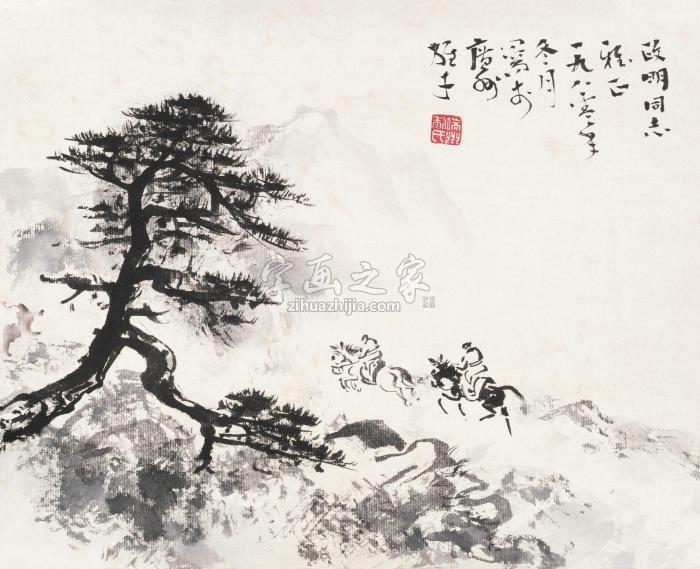 政明同志
雅正
一九八零年
冬月
写于
广州
雄才
字画之家
zihuazhijia.com